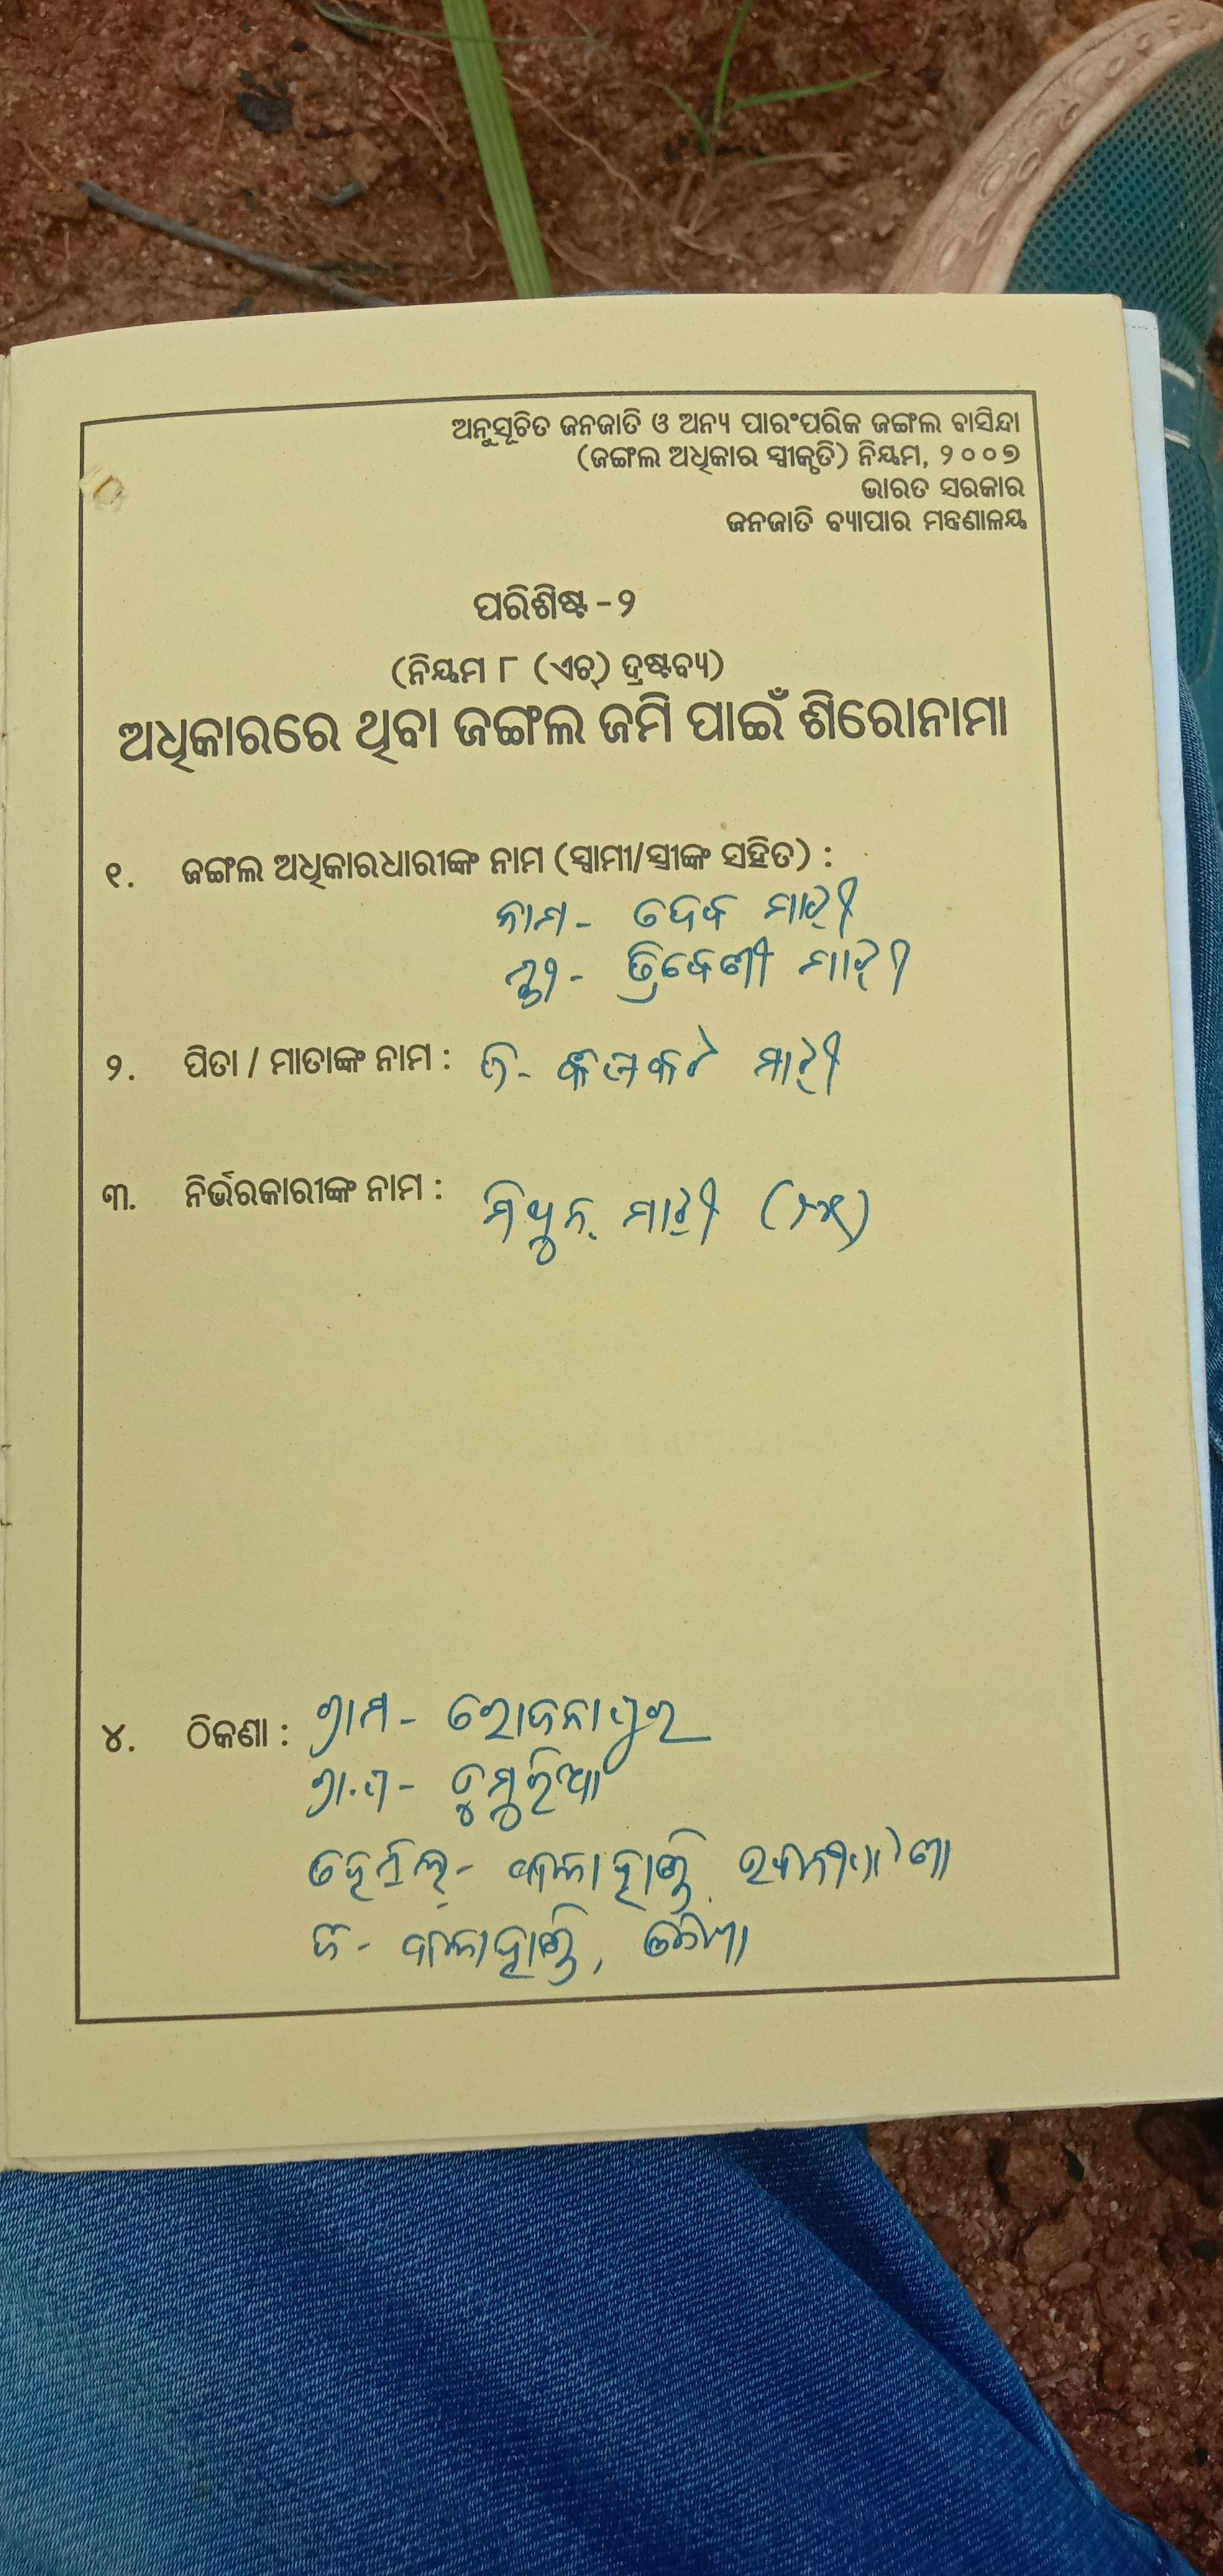 ଅନୁସୂଚିତ ଜନଜାତି ଓ ଅନ୍ୟ ପାରଂପରିକ ଜଙ୍ଗଲ ବାସିନ୍ଦା
(ଜଙ୍ଗଲ ଅଧିକାର ସ୍ୱୀକୃତି) ନିୟମ, ୨୦୦୭
ଭାରତ ସରକାର
ଜନଜାତି ବ୍ୟାପାର ମନ୍ତ୍ରଣାଳୟ
ପରିଶିଷ୍ଟ-୨
(ନିୟମ ୮ (ଏଚ୍) ଦ୍ରଷ୍ଟବ୍ୟ)
ଅଧିକାରରେ ଥିବା ଜଙ୍ଗଲ ଜମି ପାଇଁ ଶିରୋନାମା
୧. ଜଙ୍ଗଲ ଅଧିକାରଧାରୀଙ୍କ ନାମ (ସ୍ୱାମୀ/ସ୍ତ୍ରୀଙ୍କ ସହିତ) :
ନାମ- ଦେବ ମାଝୀ
ସ୍ତ୍ରୀ- ତ୍ରିବେଣୀ ମାଝୀ
୨. ପିତା / ମାତାଙ୍କ ନାମ : ମାଝୀ
୩. ନିର୍ଭରକାରୀଙ୍କ ନାମ : ମିଥୁନ୍ ମାଝୀ
୪. ଠିକଣା : ଗ୍ରାମ-
ଗ୍ରା.ପ- ଡୁମୁରିଆ
କଳାହାଣ୍ଡି
ଜି- କଳାହାଣ୍ଡି, ଓଡିଶା